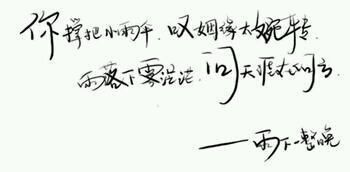 你撑把小雨伞，叹姻缘太婉转
雨落下雾茫茫，问天涯在何方
——雨下一整晚